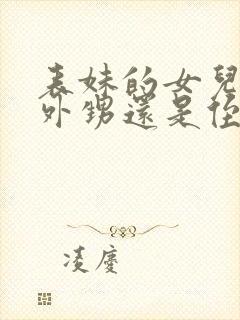 表妹的女兒
外甥還是侄
凌慶